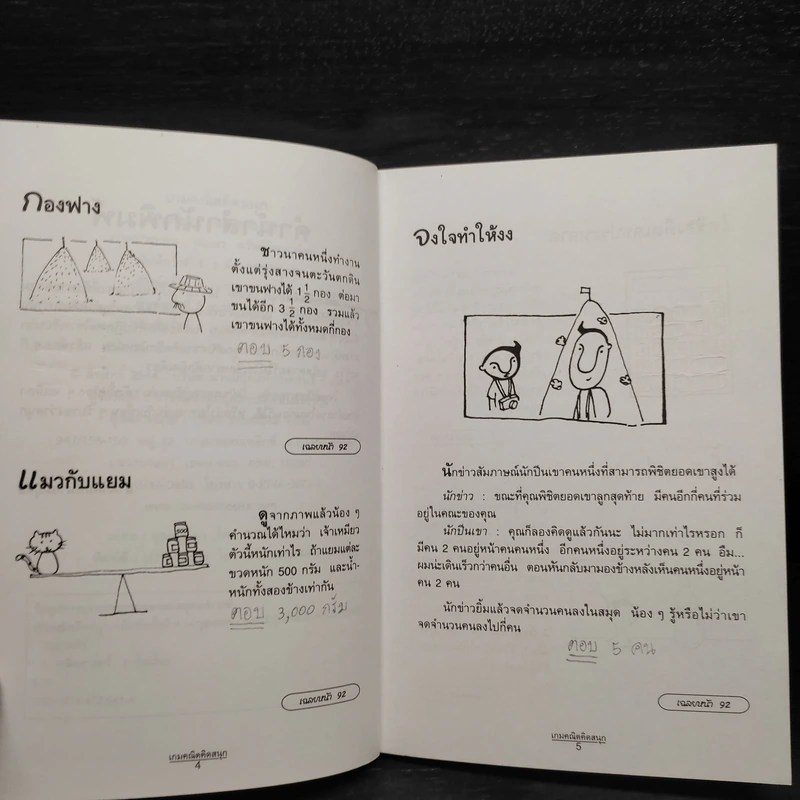 กองฟาง
ชาวนาคนหนึ่งทำงาน
ตั้งแต่รุ่งสางจนตะวันตกดิน
เขาขนฟางได้ 1 1/2 กอง ต่อมา
ขนได้อีก 3 1/2 กอง รวมแล้ว
เขาขนฟางได้ทั้งหมดกี่กอง
ตอบ 5 กอง
เฉลยหน้า 92
แมวกับแยม
ดูจากภาพแล้วน้อง ๆ
คำนวณได้ไหมว่า เจ้าเหมียว
ตัวนี้หนักเท่าไร ถ้าแยมแต่ละ
ขวดหนัก 500 กรัม และน้ำ-
หนักทั้งสองข้างเท่ากัน
500
ตอบ 3,000 กรัม
เฉลยหน้า 92
เกมคณิตคิดสนุก
4
จงใจทำให้งง
นักข่าวสัมภาษณ์นักปีนเขาคนหนึ่งที่สามารถพิชิตยอดเขาสูงได้
นักข่าว : ขณะที่คุณพิชิตยอดเขาลูกสุดท้าย มีคนอีกกี่คนที่ร่วม
อยู่ในคณะของคุณ
นักปีนเขา : คุณก็ลองคิดดูแล้วกันนะ ไม่มากเท่าไรหรอก ก็
มีคน 2 คนอยู่หน้าคนคนหนึ่ง อีกคนหนึ่งอยู่ระหว่างคน 2 คน อืม...
ผมน่ะเดินเร็วกว่าคนอื่น ตอนหันกลับมามองข้างหลังเห็นคนหนึ่งอยู่หน้า
คน 2 คน
นักข่าวยิ้มแล้วจดจำนวนคนลงในสมุด น้อง ๆ รู้หรือไม่ว่าเขา
จดจำนวนคนลงไปกี่คน
ตอบ 5 คน
เฉลยหน้า 92
เกมคณิตคิดสนุก
5